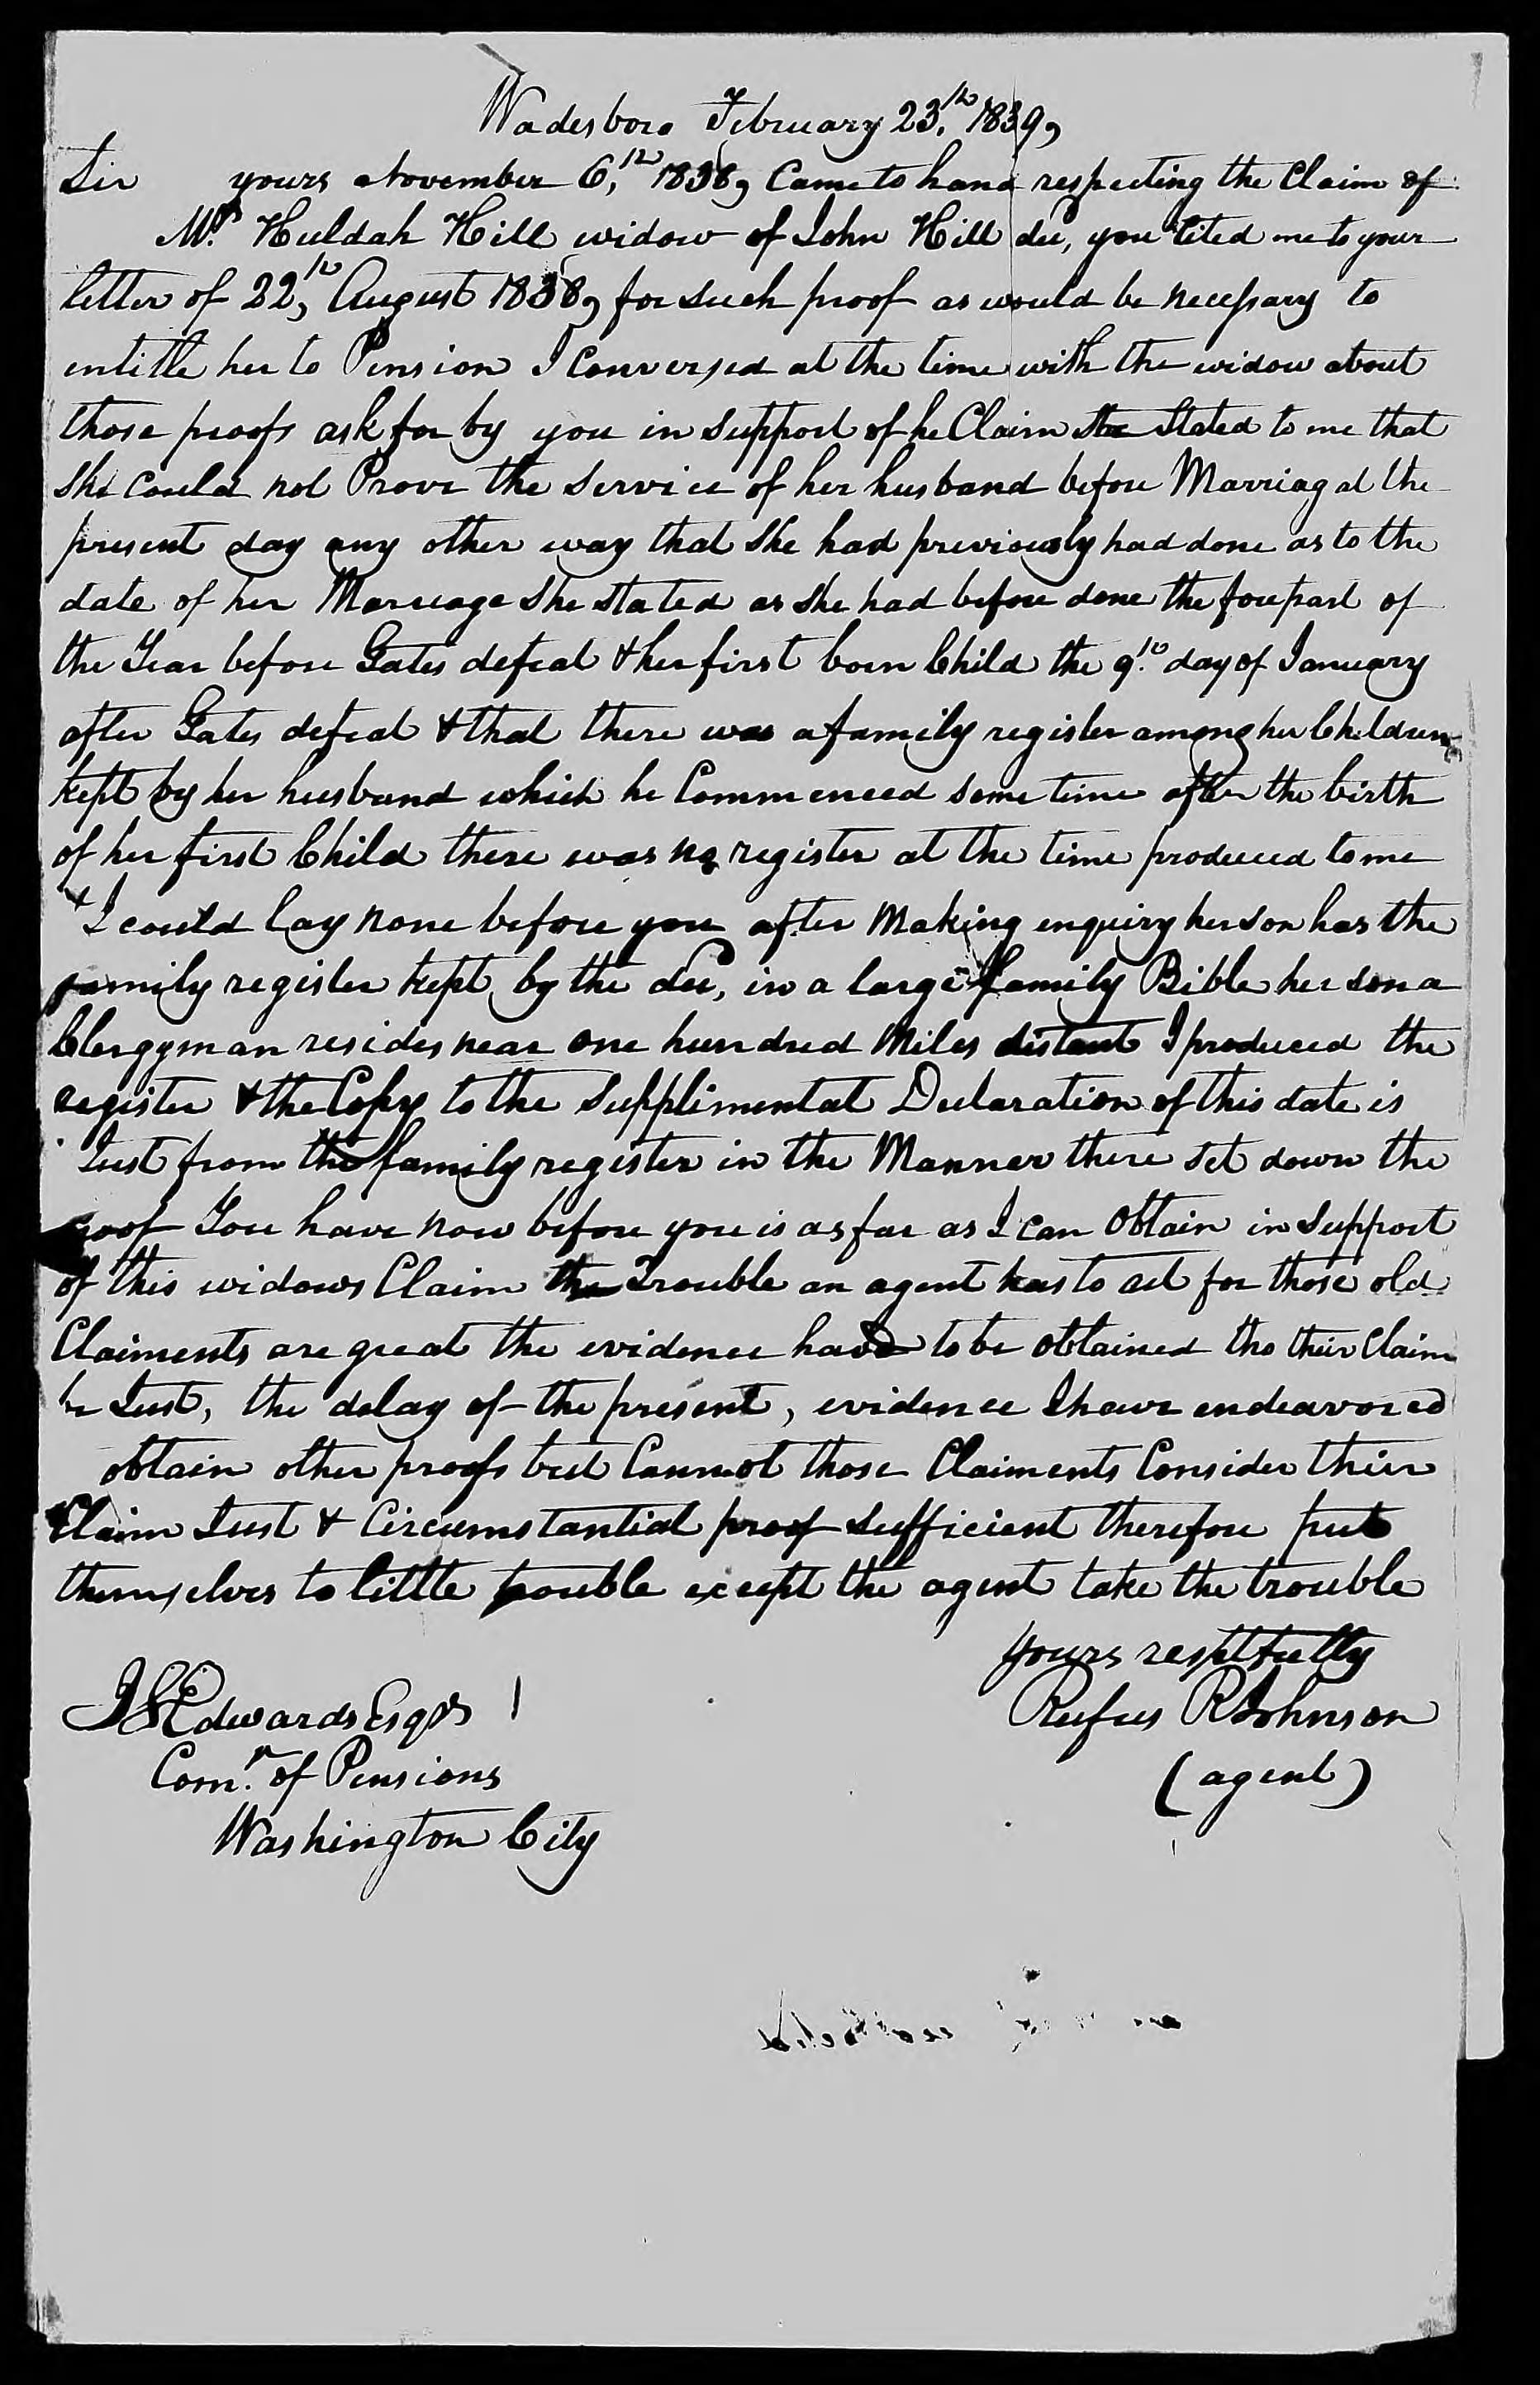 Wadesboro February 23,th 1839,
Sir yours November 6,th 1838, Came to hand respecting the Claim of
Mrs Huldah Hill widow of John Hill dec, you Cited me to your
letter of 22,th August 1838, for such proof as would be necessary to
entitle her to Pension I Conversed at the time with the widow about
those proofs ask for by you in support of he Claim She Stated to me that
She Could not Prove the Service of her husband before Marriag at the
present day any other way that She had previously had done as to the
date of her Marriage She stated as She had before done the forepart of
the Year before Gates defeat & her first born Child the 9th day of January
after Gates defeat & that there was a family register among her Children
kept by her husband which he Commenced some time after the birth
of her first Child there was no register at the time produced to me
& I could lay none before you after Making enquiry her son has the
family register kept by the dec, in a large family Bible her son a
Clergyman resides near one hundred Miles distant I produced the
register & the Copy to the Supplimental Declaration of this date is
Just from the family register in the Manner there set down the
proof You have now before you is as far as I can Obtain in Support
of this widows Claim the Trouble an agent has to act for those old
Claiments are great the evidence have to be obtained tho their Claim
be Just, the delay of the present, evidence I have endeavored
obtain other proofs but Cannot those Claiments Consider their
Claim Just & Circumstantial proof sufficient therefore put
themselves to little trouble except the agent take the trouble
yours resptfully
J L Edwards Esqrs Rufus R Johnson
Comr. of Pensions (agent)
Washington City